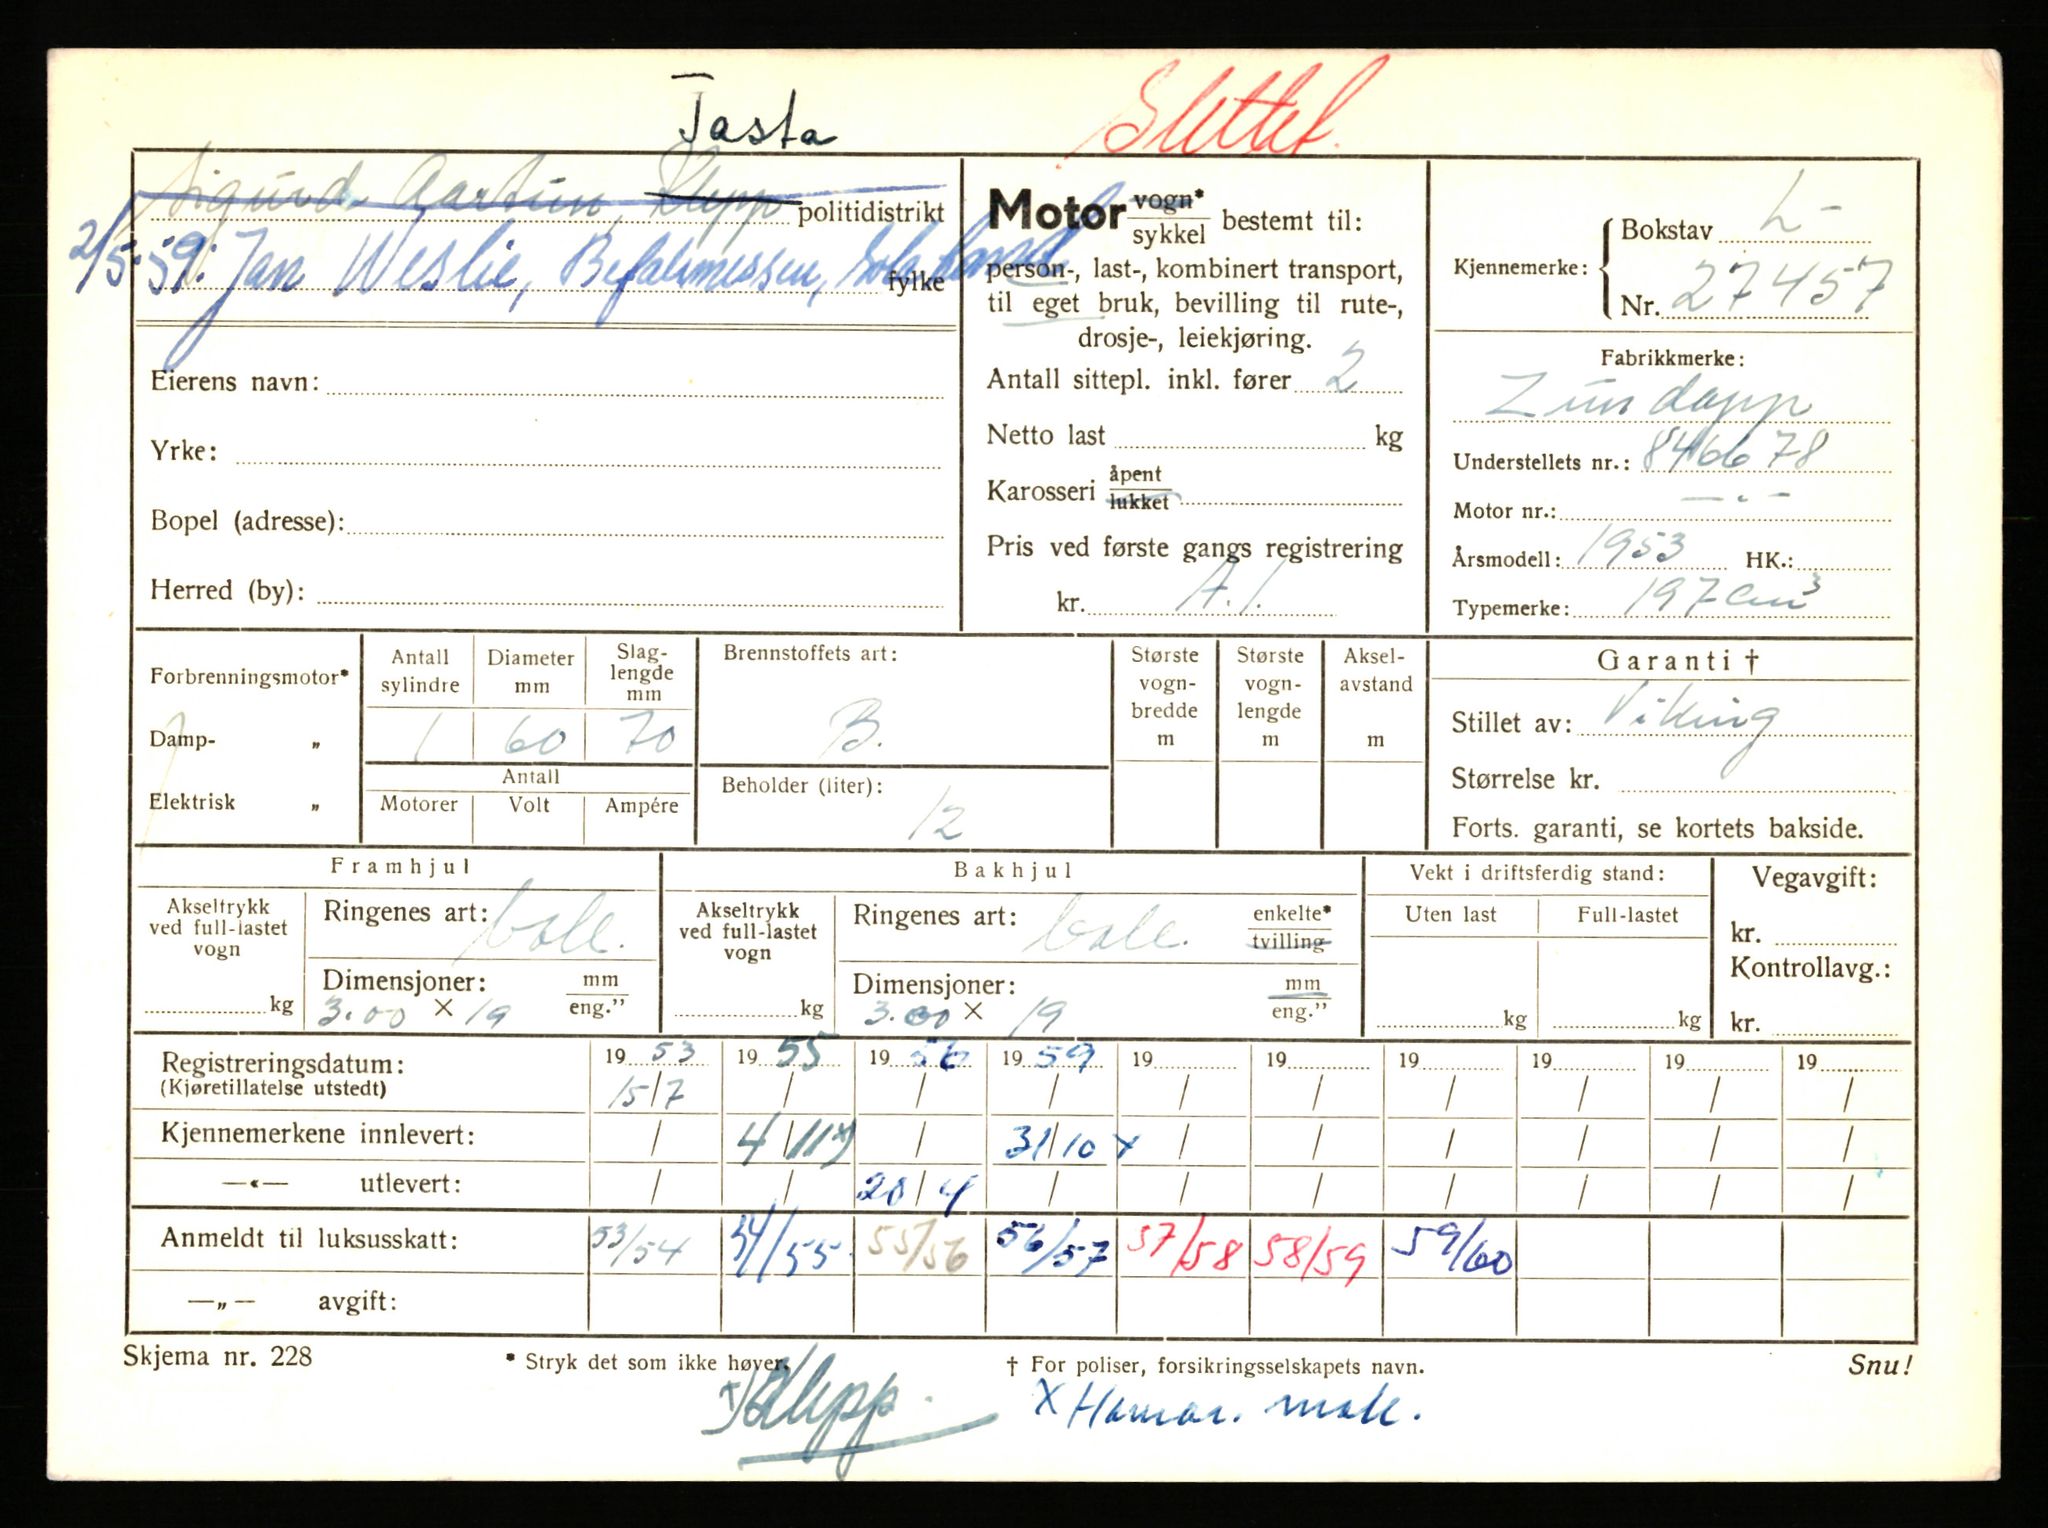 Tasta
Slettet.
Sigurd Aartun, Klepp politidistrikt
2/5-59: Jan Weslie, Befalsmessen, Sola fylke
Eierens navn:
Yrke:
Bopel (adresse):
Herred (by):
Motor vogn* sykkel bestemt til:
person-, last-, kombinert transport,
til eget bruk, bevilling til rute-,
drosje-, leiekjøring.
Antall sittepl. inkl. fører 2
Netto last kg
Karosseri åpent lukket
Pris ved første gangs registrering
kr. A.I.
Kjennemerke: Bokstav L-
Nr. 27457
Fabrikkmerke:
Zündapp
Understellets nr.: 846678
Motor nr.: — . —
Årsmodell: 1953 HK.:
Typemerke: 197 cm³
Forbrenningsmotor*
Damp- „
Elektrisk „
Antall sylindre 1
Diameter mm 60
Slaglengde mm 70
Antall
Motorer Volt Ampére
Brennstoffets art:
B.
Beholder (liter):
12
Største vogn-bredde m
Største vogn-lengde m
Aksel-avstand m
Garanti †
Stillet av: Viking
Størrelse kr.
Forts. garanti, se kortets bakside.
Framhjul
Akseltrykk ved full-lastet vogn kg
Ringenes art:
Dimensjoner: mm eng.”
3.00 × 19
Bakhjul
Akseltrykk ved full-lastet vogn kg
Ringenes art: enkelte* tvilling
Dimensjoner: mm eng.”
3.00 × 19
Vekt i driftsferdig stand:
Uten last Full-lastet
kg kg
Vegavgift:
kr.
Kontrollavg.:
kr.
Registreringsdatum: 19 53 19 55 19 56 19 59 19 19 19 19 19 19
(Kjøretillatelse utstedt) 15/7 / / / / / / / / /
Kjennemerkene innlevert: / 4/11 x) / 31/10 x / / / / / /
—«— utlevert: / / 20/4 / / / / / / /
Anmeldt til luksusskatt: 53/54 54/55 55/56 56/57 57/58 58/59 59/60
—„— avgift:
Skjema nr. 228
* Stryk det som ikke høver.
† For poliser, forsikringsselskapets navn.
Snu!
x) Klepp.
x Hamar.